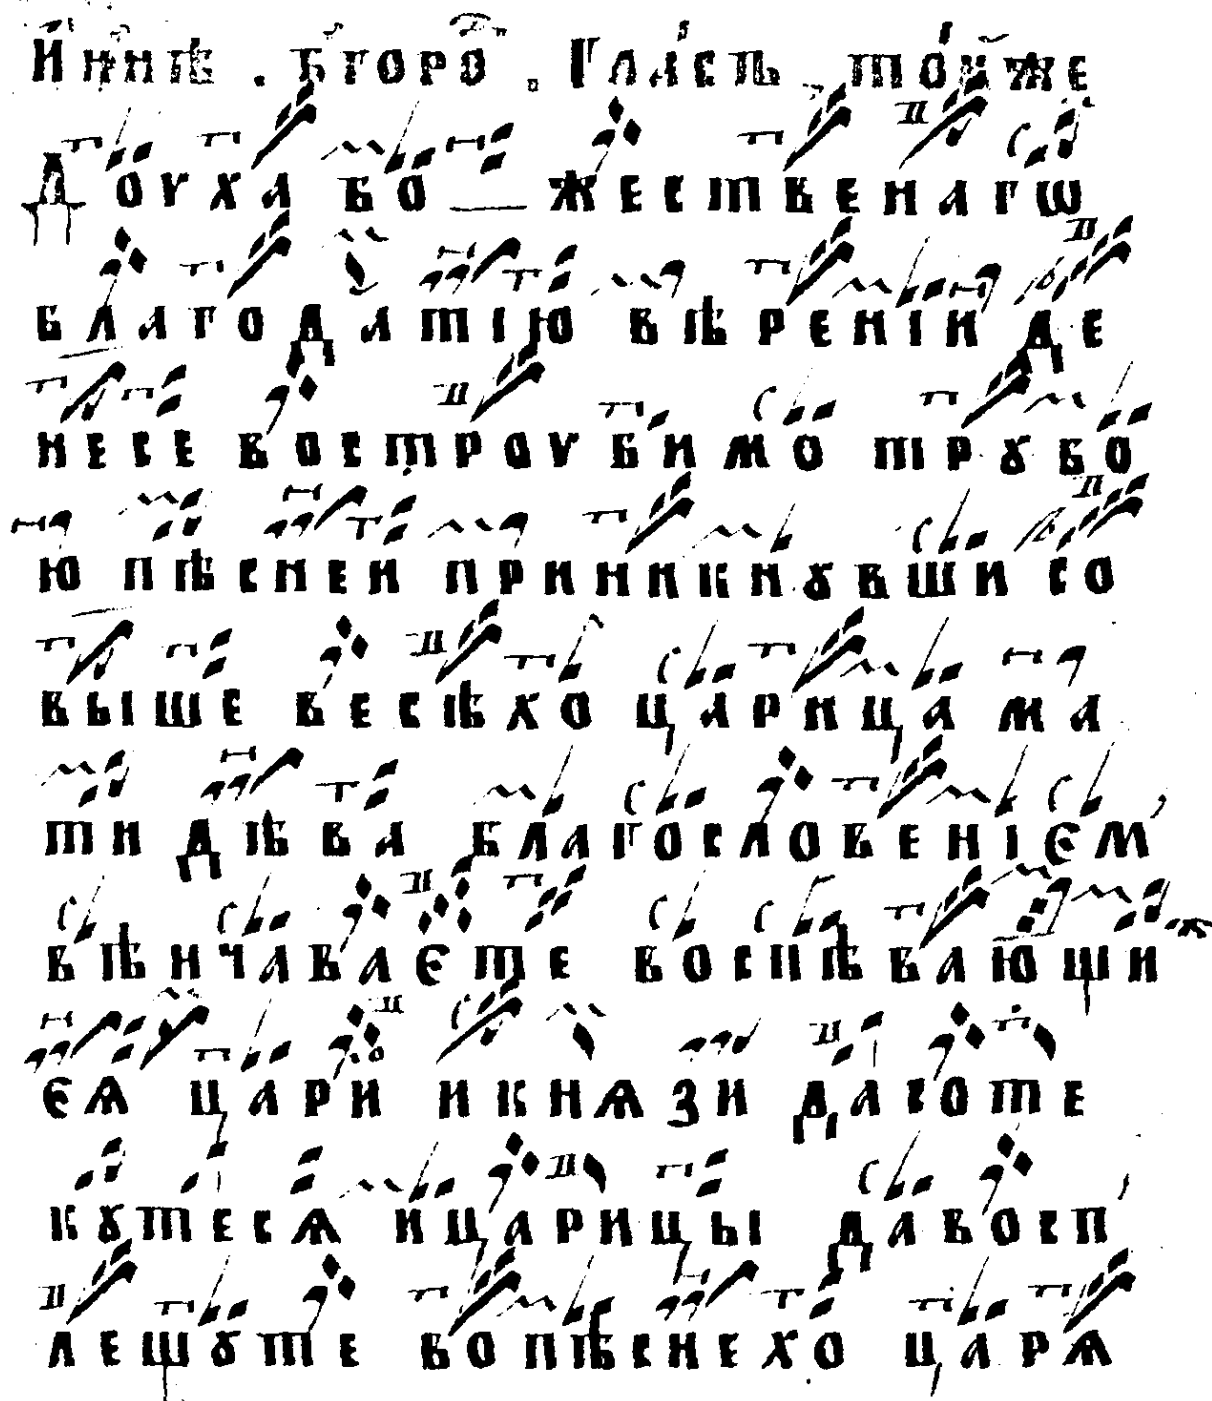 И ннѣ . Бгоро . Гласъ тои же
Доуха бо жественагѡ
благодатїю вѣренїи де
несе востроубимо трꙋбо
ю пѣсней приникнꙋвши со
выше весѣхо царица ма
ти дѣва благословенїєм
вѣнчаваєте воспѣвающи
єѧ цари и кнѧзи да соте
кꙋтесѧ и царицы да восп
лещꙋте во пѣснехо царѧ